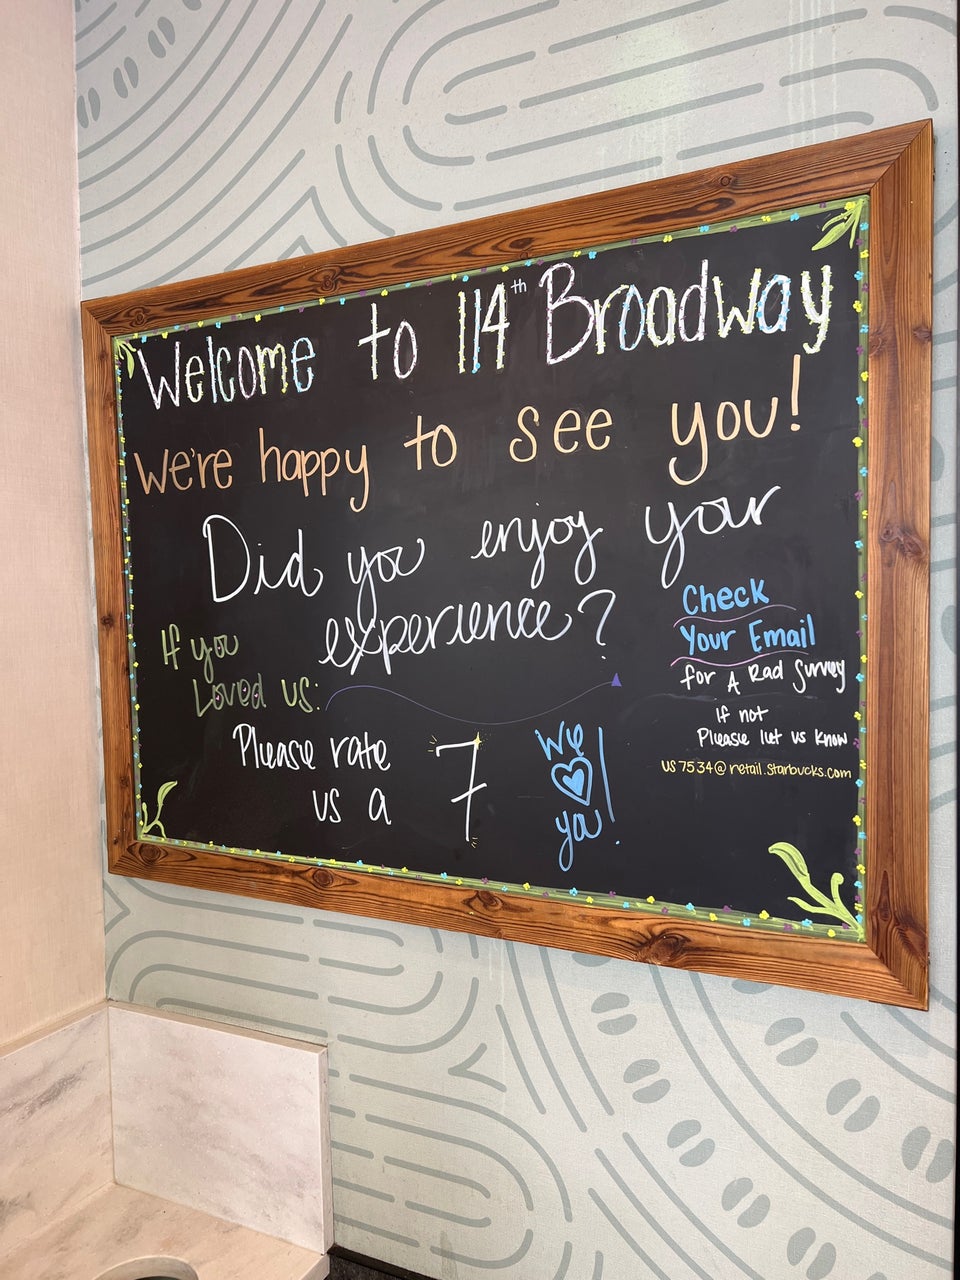 Welcome to 114th Broadway
we're happy to see you!
Did you enjoy your
experience?
If you
Loved us:
Please rate
us a 7
We
♡
you!
Check
Your Email
for A Rad Survey
if not
Please let us know
us7534@retail.starbucks.com